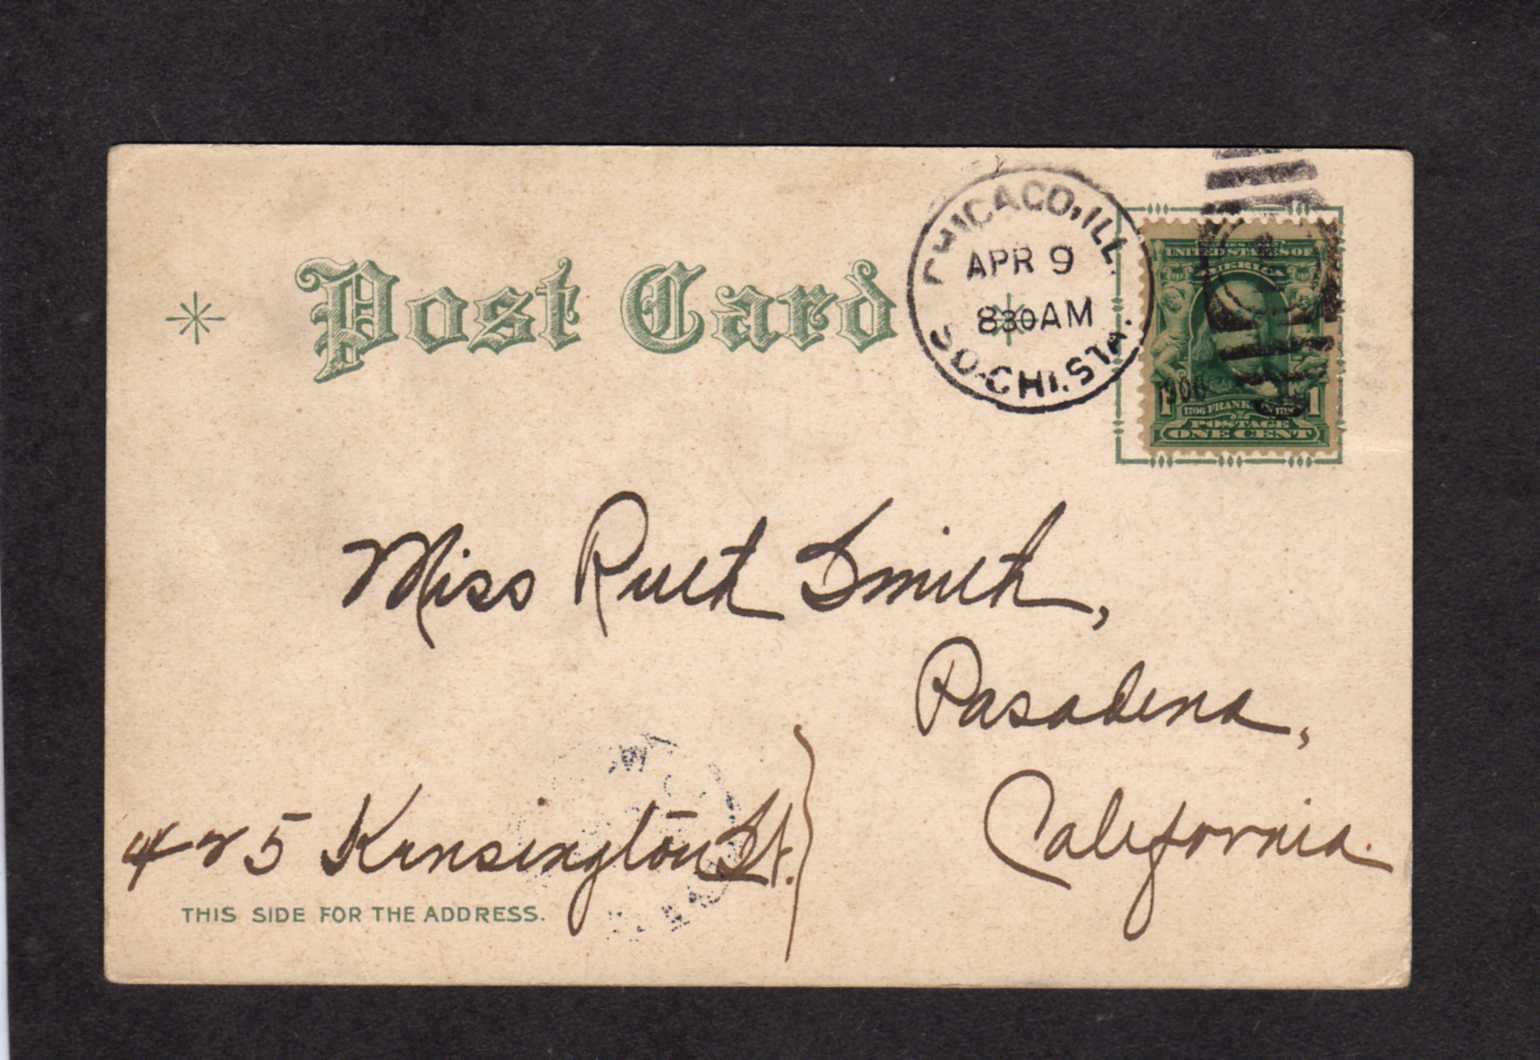 Post Card
CHICAGO, ILL.
APR 9
830 AM
SO. CHI. STA.
UNITED STATES OF
AMERICA
1706 FRANKLIN
1 1
POSTAGE
ONE CENT
Miss Ruth Smith,
Pasadena,
California.
425 Kensington St.
THIS SIDE FOR THE ADDRESS.